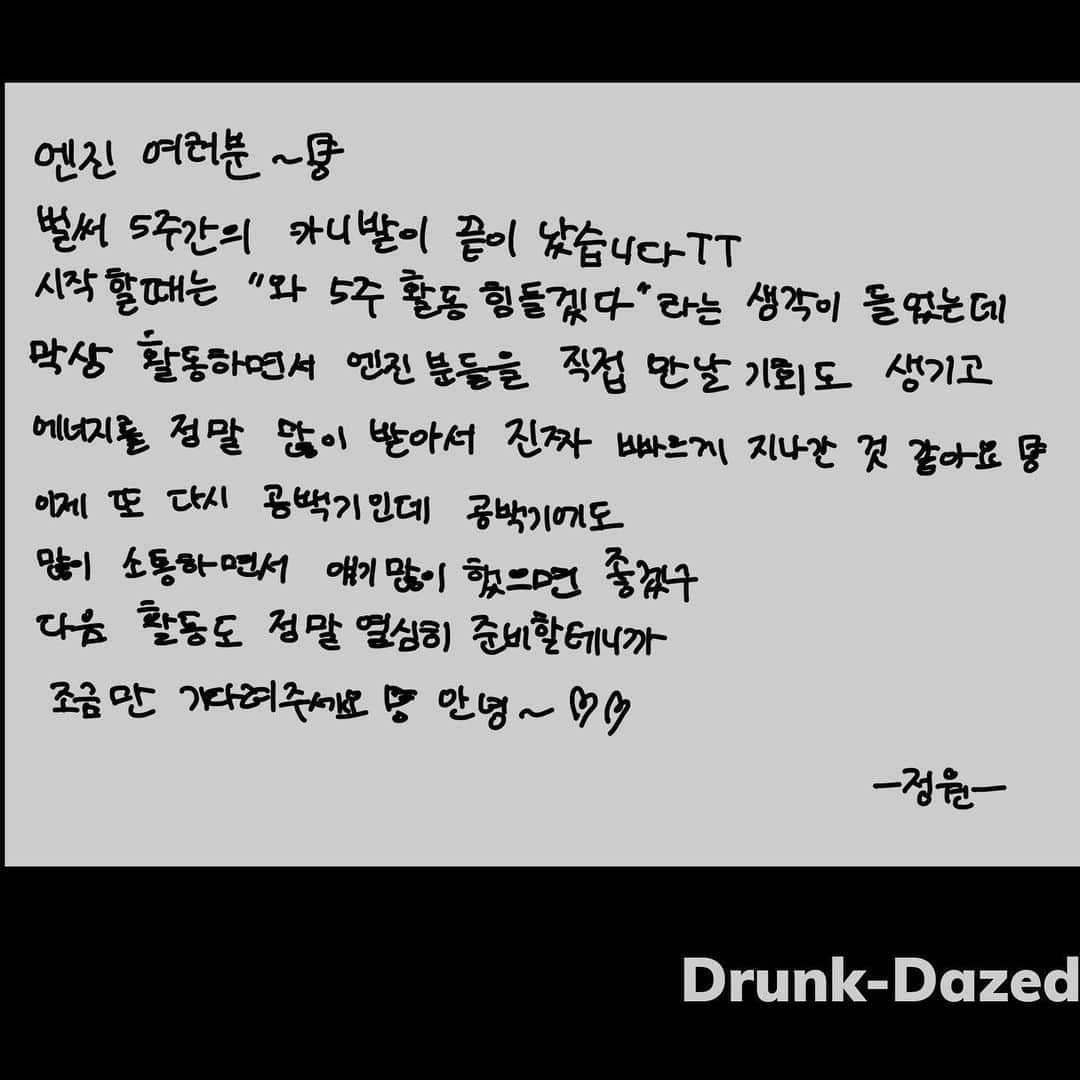 엔진 여러분~몽
벌써 5주간의 카니발이 끝이 났습니다TT
시작할때는 "와 5주 활동 힘들겠다"라는 생각이 들었는데
막상 활동하면서 엔진분들을 직접 만날 기회도 생기고
에너지를 정말 많이 받아서 진짜 빠르게 지나간 것 같아요 몽
이제 또 다시 공백기인데 공백기에도
많이 소통하면서 얘기많이 했으면 좋겠구
다음 활동도 정말 열심히 준비할테니까
조금만 기다려주세요 몽 안녕~♡♡
-정원-
Drunk-Dazed